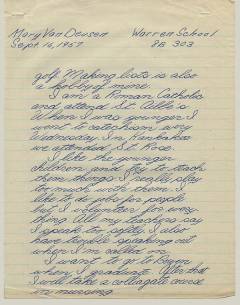 Mary Van Deusen Warren School
Sept. 16, 1957 8B 303
golf. Making lists is also
a hobby of mine.
I am a Roman Catholic
and attend St.
When I was younger I
went to catechism every
Wednesday. In Kankakee
we attended St. Rose.
I like the younger
children and try to teach
them things. I really play
too much with them. I
like to do jobs for people
but I volunteer for every
thing. All my teachers say
I speak too softly. I also
have trouble speaking out
when I'm called on.
I want to go to
when I graduate. After that
I will take a collagate course
in nursing.